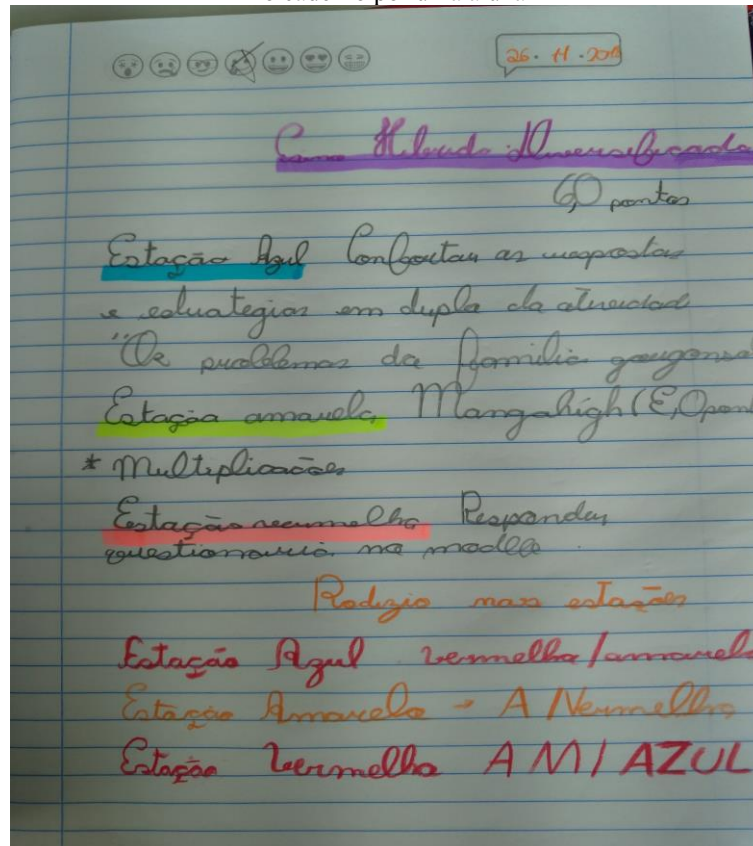 26. 11 . 20
Diversificada
6,0 pontos
Estação Azul Confrontar as respostas
e estrategias em dupla da atividad
"Os problemas da família gorgonso
Estação amarela Mangahigh (
* Multiplicações
Estação vermelha Responder
questionario no moodle.
Rodizio nas estações
Estação Azul vermelha/amarel
Estação Amarela → A/Vermelho
Estação Vermelha AM/AZUL